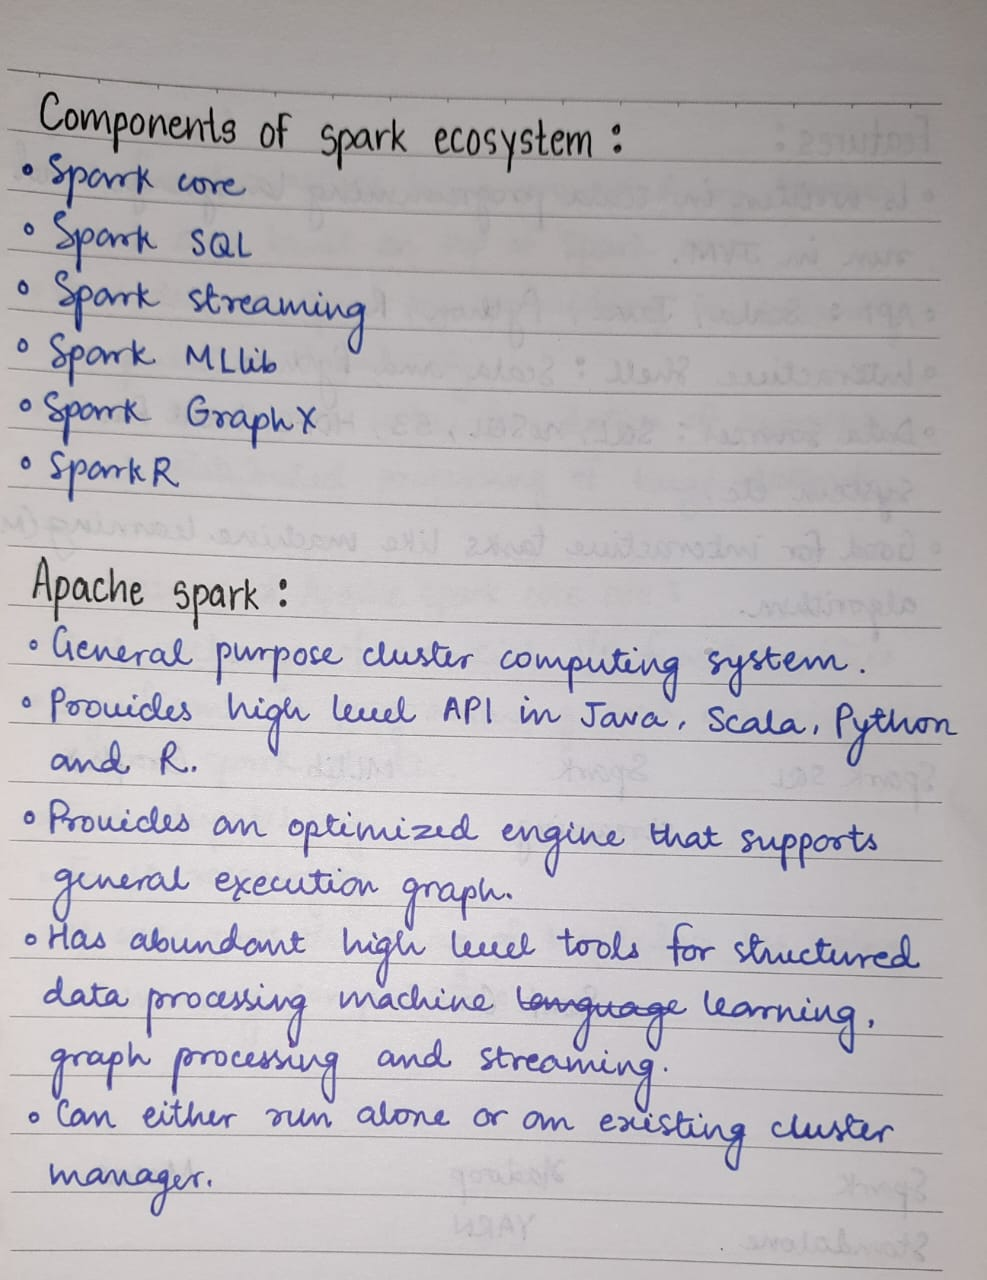 Components of spark ecosystem :
• Spark core
• Spark SQL
• Spark streaming
• Spark MLlib
• Spark GraphX
• SparkR
Apache spark :
• General purpose cluster computing system.
• Provides high level API in Java, Scala, Python
and R.
• Provides an optimized engine that supports
general execution graph.
• Has abundant high level tools for structured
data processing machine language learning,
graph processing and streaming.
• Can either run alone or on existing cluster
manager.